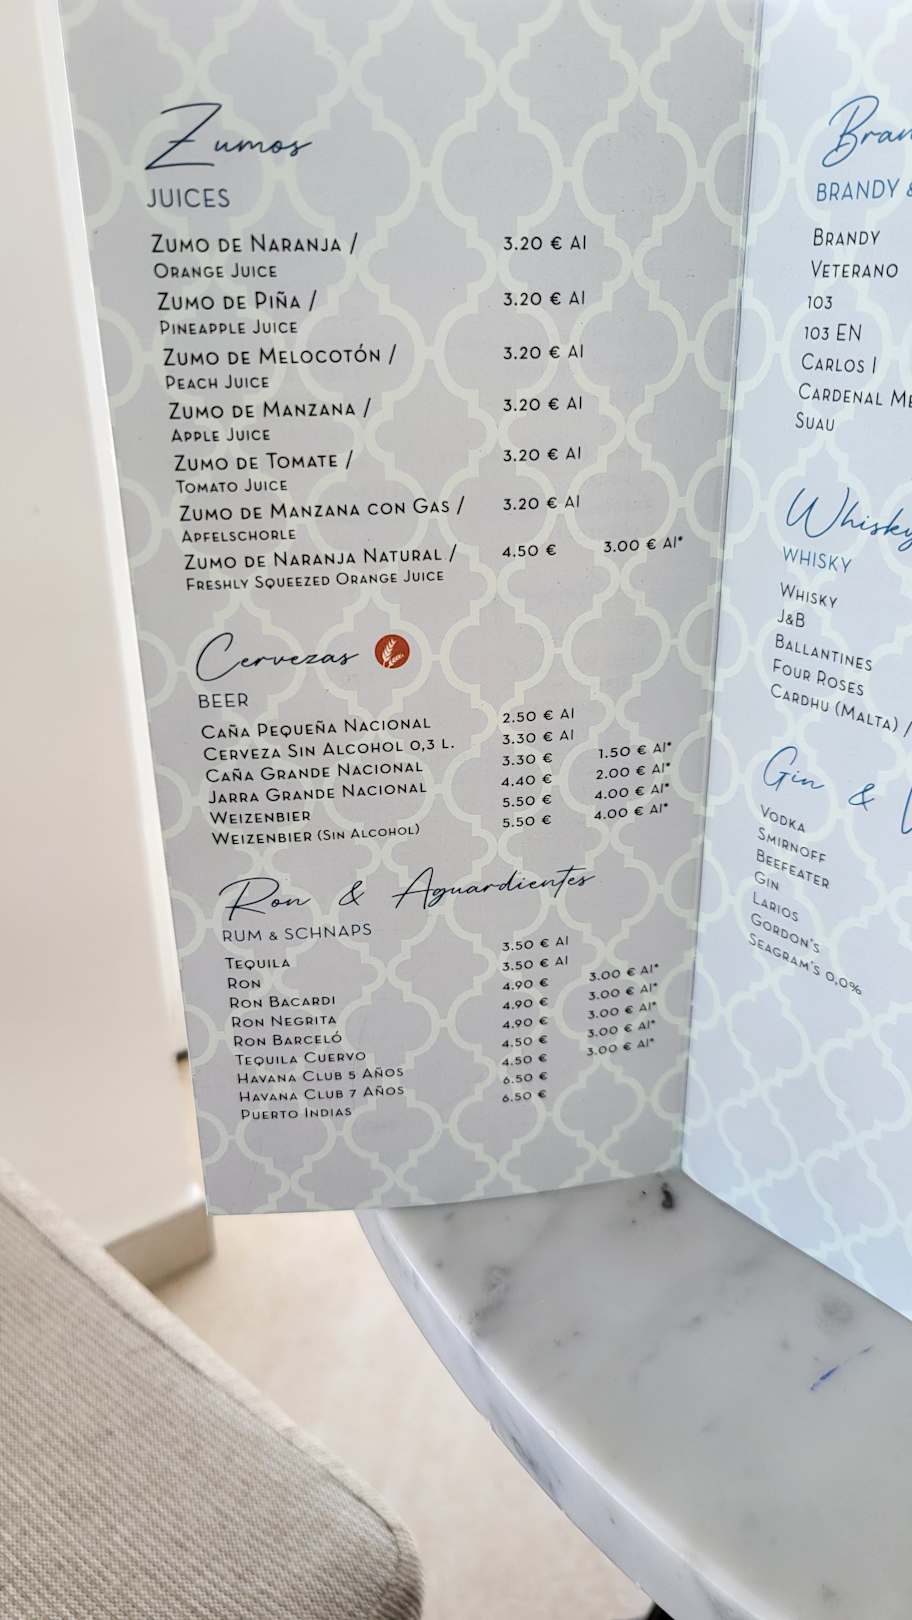 Zumos
JUICES
ZUMO DE NARANJA / 3.20 € AI
ORANGE JUICE
ZUMO DE PIÑA / 3.20 € AI
PINEAPPLE JUICE
ZUMO DE MELOCOTÓN / 3.20 € AI
PEACH JUICE
ZUMO DE MANZANA / 3.20 € AI
APPLE JUICE
ZUMO DE TOMATE / 3.20 € AI
TOMATO JUICE
ZUMO DE MANZANA CON GAS / 3.20 € AI
APFELSCHORLE
ZUMO DE NARANJA NATURAL / 4.50 € 3.00 € AI*
FRESHLY SQUEEZED ORANGE JUICE
Cervezas
BEER
CAÑA PEQUEÑA NACIONAL 2.50 € AI
CERVEZA SIN ALCOHOL 0,3 L. 3.30 € AI
CAÑA GRANDE NACIONAL 3.30 € 1.50 € AI*
JARRA GRANDE NACIONAL 4.40 € 2.00 € AI*
WEIZENBIER 5.50 € 4.00 € AI*
WEIZENBIER (SIN ALCOHOL) 5.50 € 4.00 € AI*
Ron & Aguardientes
RUM & SCHNAPS
TEQUILA 3.50 € AI
RON 3.50 € AI
RON BACARDI 4.90 € 3.00 € AI*
RON NEGRITA 4.90 € 3.00 € AI*
RON BARCELÓ 4.90 € 3.00 € AI*
TEQUILA CUERVO 4.50 € 3.00 € AI*
HAVANA CLUB 5 AÑOS 4.50 € 3.00 € AI*
HAVANA CLUB 7 AÑOS 6.50 €
PUERTO INDIAS 6.50 €
BRANDY &
BRANDY
VETERANO
103
103 EN
CARLOS I
CARDENAL
SUAU
Whisky
WHISKY
WHISKY
J&B
BALLANTINES
FOUR ROSES
CARDHU (MALTA) /
Gin &
VODKA
SMIRNOFF
BEEFEATER
GIN
LARIOS
GORDON'S
SEAGRAM'S 0,0%